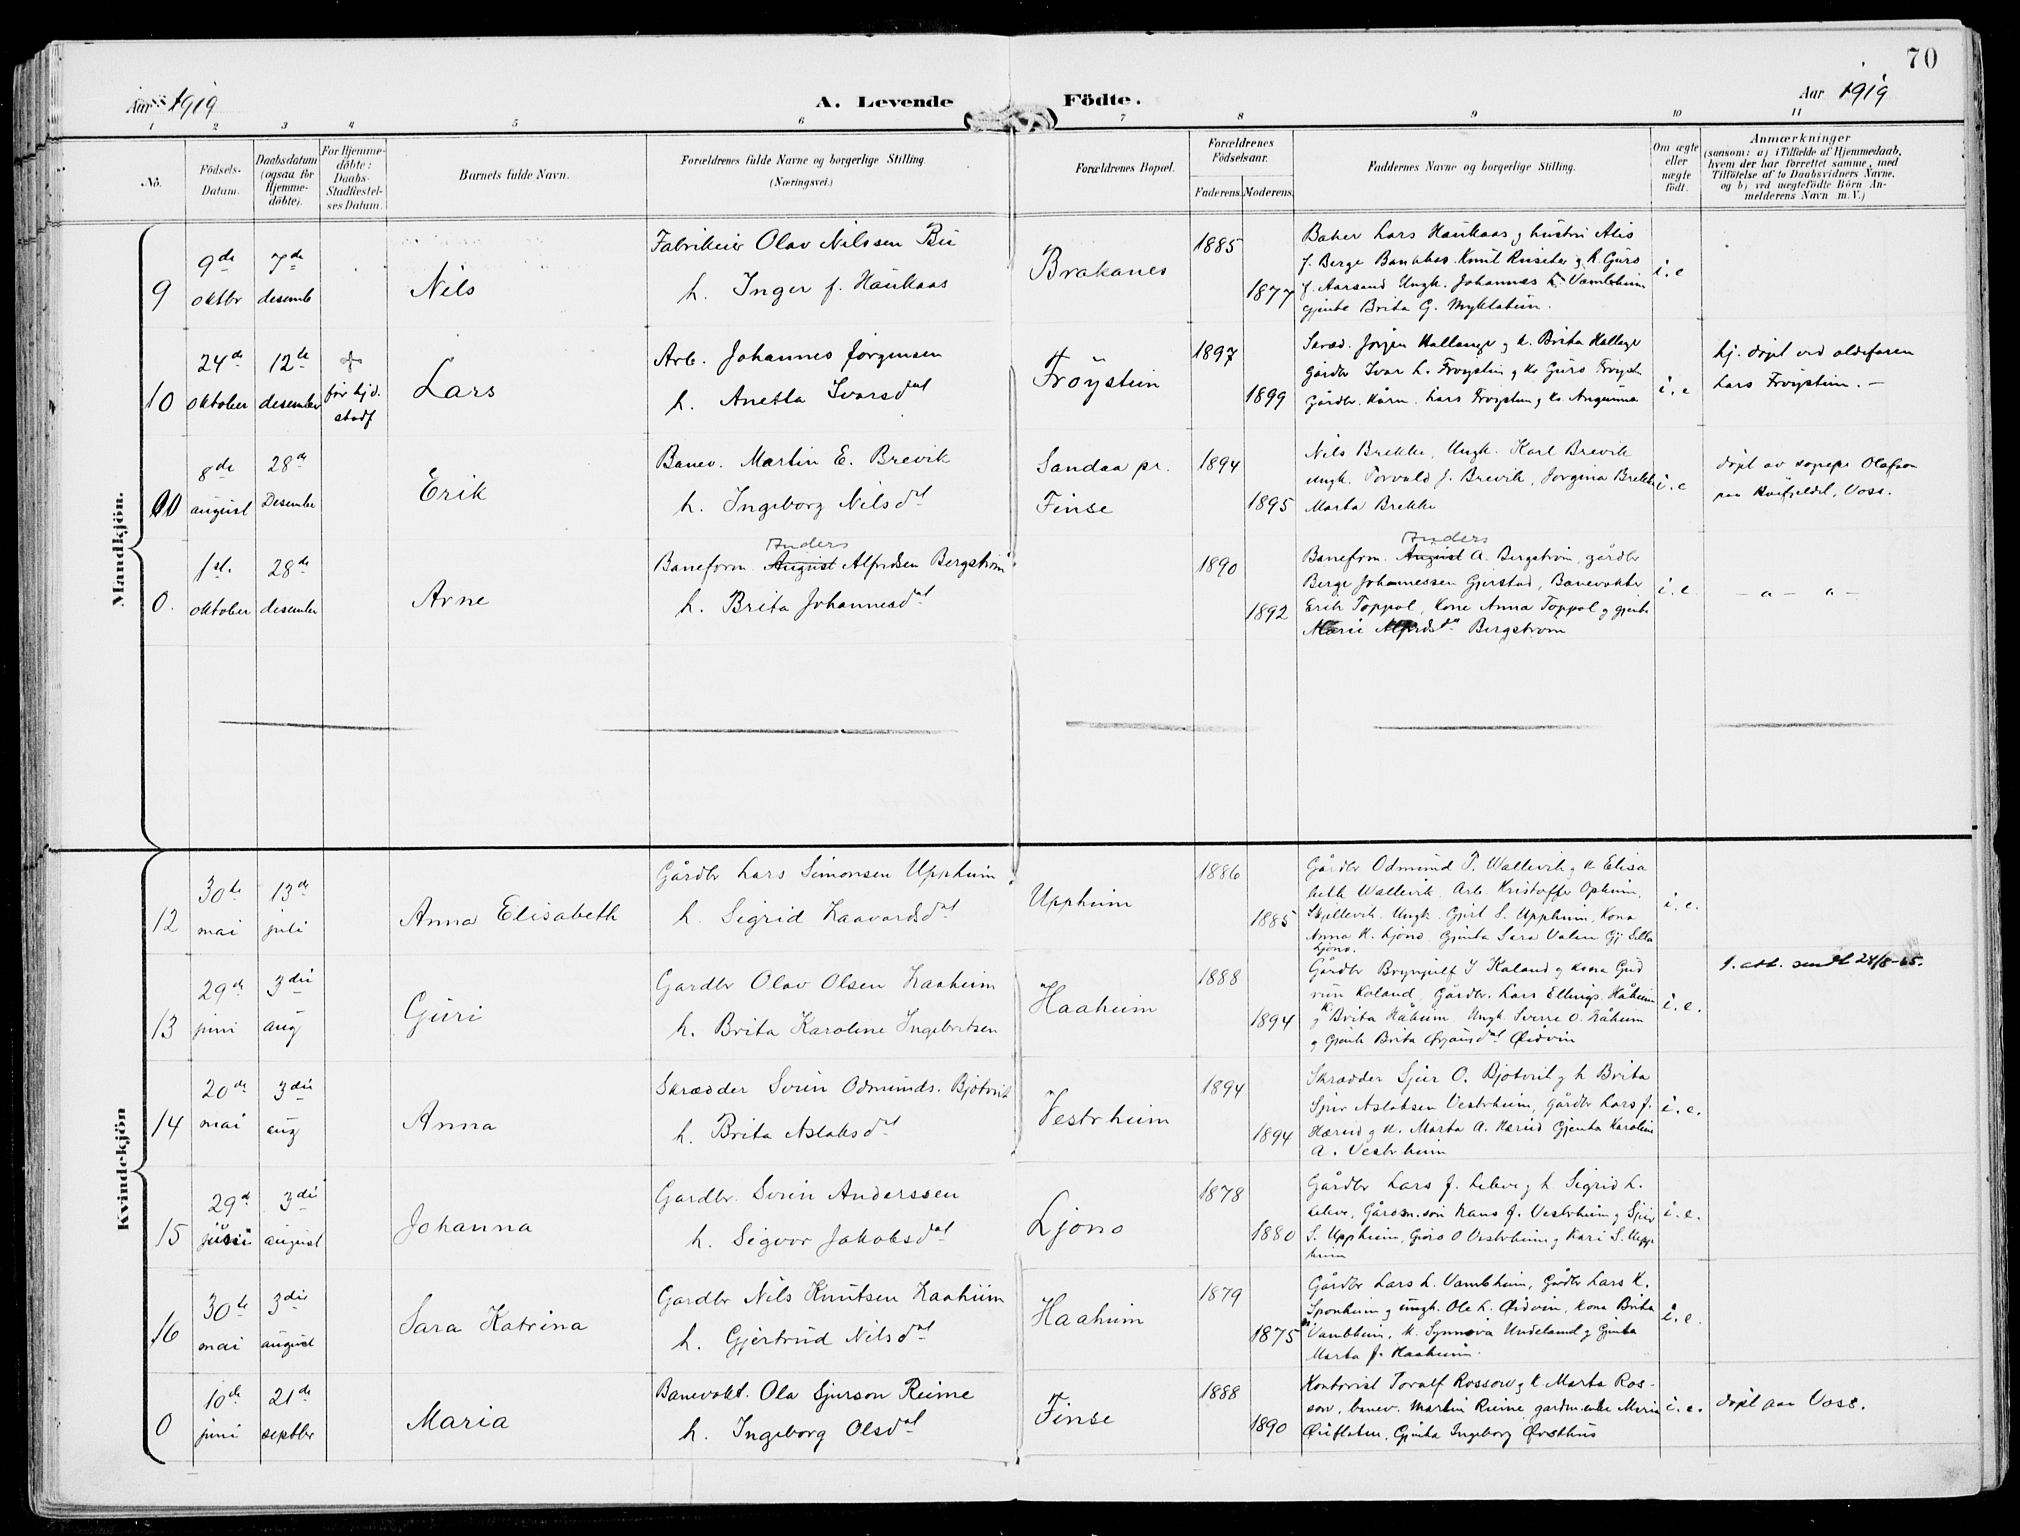 70
Aar 1919
A. Levende Födte.
Aar 1919
1 2 3 4 5 6 7 8 9 10 11
No.
Födsels-Datum.
Daabsdatum (ogsaa for Hjemme-döbte).
For Hjemme-döbte: Daabs-Stadfæstel-ses Datum.
Barnets fulde Navn.
Forældrenes fulde Navne og borgerlige Stilling.
(Næringsvei.)
Forældrenes Bopæl.
Forældrenes Födselsaar.
Faderens. Moderens.
Faddernes Navne og borgerlige Stilling.
Om ægte eller uægte födt.
Anmærkninger
(saasom: a) i Tilfælde af Hjemmedaab,
hvem der har forrettet samme, med
Tilföielse af to Daabsvidners Navne,
og b) ved uægtefödte Börn An-
melderens Navn m. V.)
Mandkjön.
9
9de oktbr
7de desemb
Nils
Fabrikeier Olav Nilssen Bu
h. Inger f. Haukaas
Brakanes
1885
1877
Baker Lars Haukaas g hustru Alis
f. Berge Knut g k. Guro
f. Aarsand Ungk. Johannes
gjente Brita G. Myklatun.
i. e
10
24de oktober
12te desember
+
før hjd. stadf
Lars
Arb. Johannes Jørgensen
h. Anetta Ivarsdat
Frøystein
1897
1899
Jørgen Hallanger g k. Brita
Gårdbr Ivar L. g ko Guro
Gårdbr. Lars g ko.
i. e
hj. døpt ved oldefaren
Lars Frøystein. –
8de august
28de Desember
Erik
Banev. Martin E. Brevik
h. Ingeborg Nilsdat
Sandaa pr.
Finse
1894
1895
Nils Brekke, Ungk. Karl Brevik
Ungk. Torvald J. Brevik, Jorgina Brekke
Marta Brekke
i. e
døpt av sognepr Olafson
paa Voss.
0.
1st. oktober
28de desember
Arne
Anders
Baneform. August Alfredsen Bergstrøm
h. Brita Johannesdat
1890
1892
Anders
Baneform. August A. Bergstrøm, gårdbr
Berge Johannessen Gjerstad, Banevokter
Erik Toppol, Kone Anna Toppol g gjente
Marie Alfredsda Bergstrøm
i. e.
– " – " –
Kvindekjön
12
30te mai
13de juli
Anna Elisabeth
Gårdbr Lars Simonsen Uppheim
h. Sigrid Haavardsdat
Uppheim
1886
1885
Gårdbr Odmund T. Wallevik g k Elisa
beth Wallevik. Arb. Kristoffer Opheim,
Skillevik. Ungk. S. Uppheim, Kona
Anna K. Ljono. Gjenta Sara
Ljono.
i. e.
13
29de juni
3die aug
Guri
Gardbr Olav Olsen Haaheim
h. Brita Karoline Ingebritsen
Haaheim
1888
1894
Gårdbr Brynjulf I Koland g kona Gud
run Koland, Gårdbr. Lars Ellings. Håheim
g k Brita Håheim, Ungk. Sverre O. Håheim
g Gjente Brita Øidvin
i. e.
1. att. sendt 24/8-65.
14
20de mai
3die aug
Anna
Skrædder Svein Odmunds. Bjotveit
h. Brita Aslaksdat
Vestrheim
1894
1894
Skrædder Sjur O. Bjotveit g h Brita
Sjur Aslaksen Vestrheim, Gårdbr Lars J.
Hæreid g k. Marta A. Hæreid Gjenta Karoline
A. Vestrheim
i. e.
15
29d juni
3die august
Johanna
Gardbr. Svein Anderssen
h. Sigvor Jakobsdat
Ljono
1878
1880
Gårdbr Lars J. g h Sigrid L.
Gårdm.søn Hans J. Vestrheim g Sjur
S. Uppheim, Guro O Vestrheim g Kari S. Upp
heim
i. e.
16
30te mai
3die august
Sara Katrina
Gardbr Nils Knutsen Haaheim
h. Gjertrud Nilsdat
Haaheim
1879
1875
Gårdbr Lars L. Vambheim, Gårdbr Lars K.
Sponheim g ungk. Ole L. Øidvin, kona Brita
Vambheim, k. Synnøva Undeland g Gjenta
Marta J. Haaheim.
i. e.
0
10de juni
21de septbr
Maria
Banevokt. Ola Sjurson Reime
h. Ingeborg Olsdat
Finse
1888
1890
Kontorist Toralf Rossow g k. Marta Ros-
sow, banev. Martin Reime, gardm.enke Maria
Gjenta Ingeborg
i. e.
døpt paa Voss.